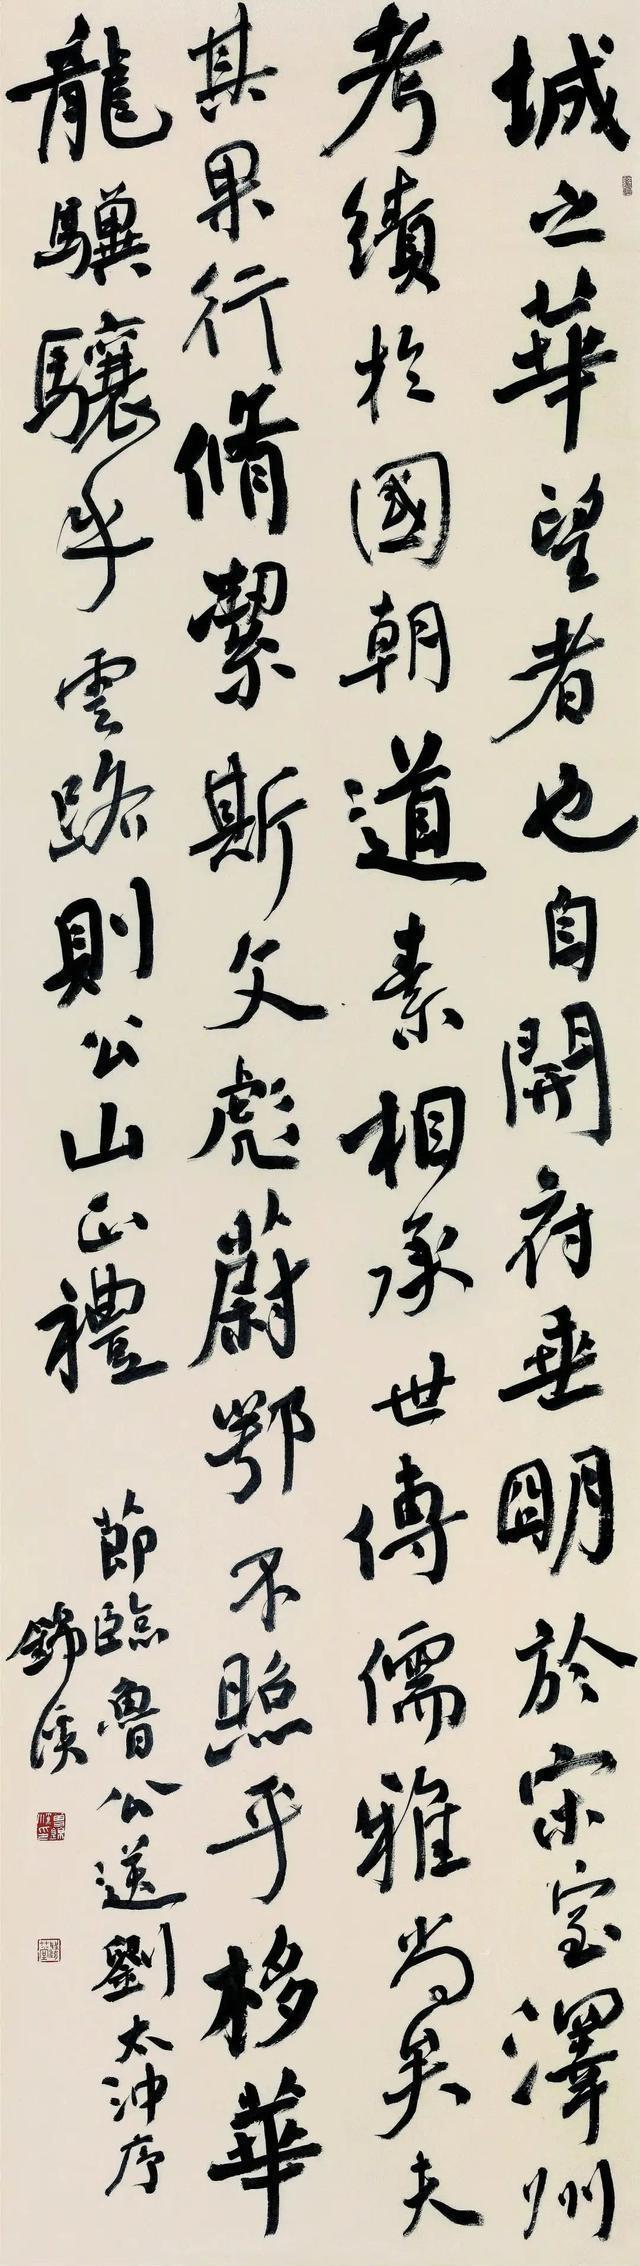 城之華望者也自開府垂明於宋室澤州
考績於國朝道素相承世傳儒雅尚矣夫
其果行脩絜斯文彪蔚鄂不照乎棣華
龍驤驤乎雲路則公山正禮
節臨魯公送劉太沖序
錦溪